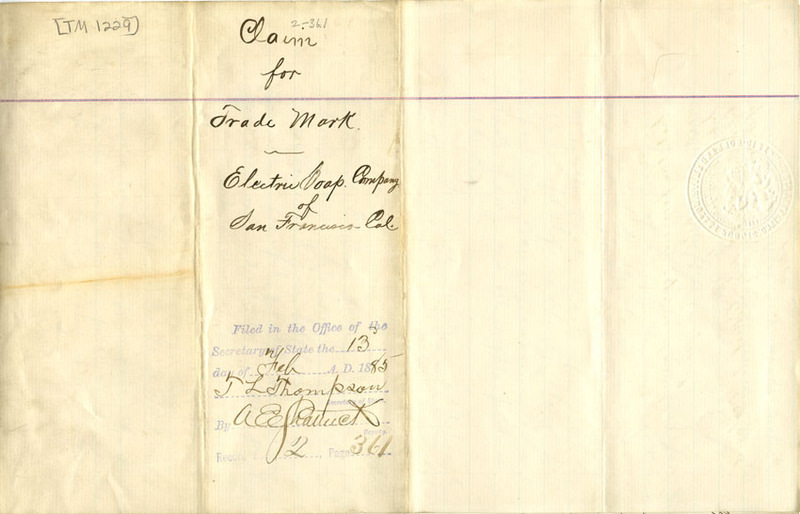 [TM 1229]
2-361
Claim
for
Trade Mark.
Electric Soap. Company
of
San Francisco Cal.
Filed in the Office of the
Secretary of State the 13
day of Feb A. D. 1885
T L Thompson
By A E
Record 2, Page 361